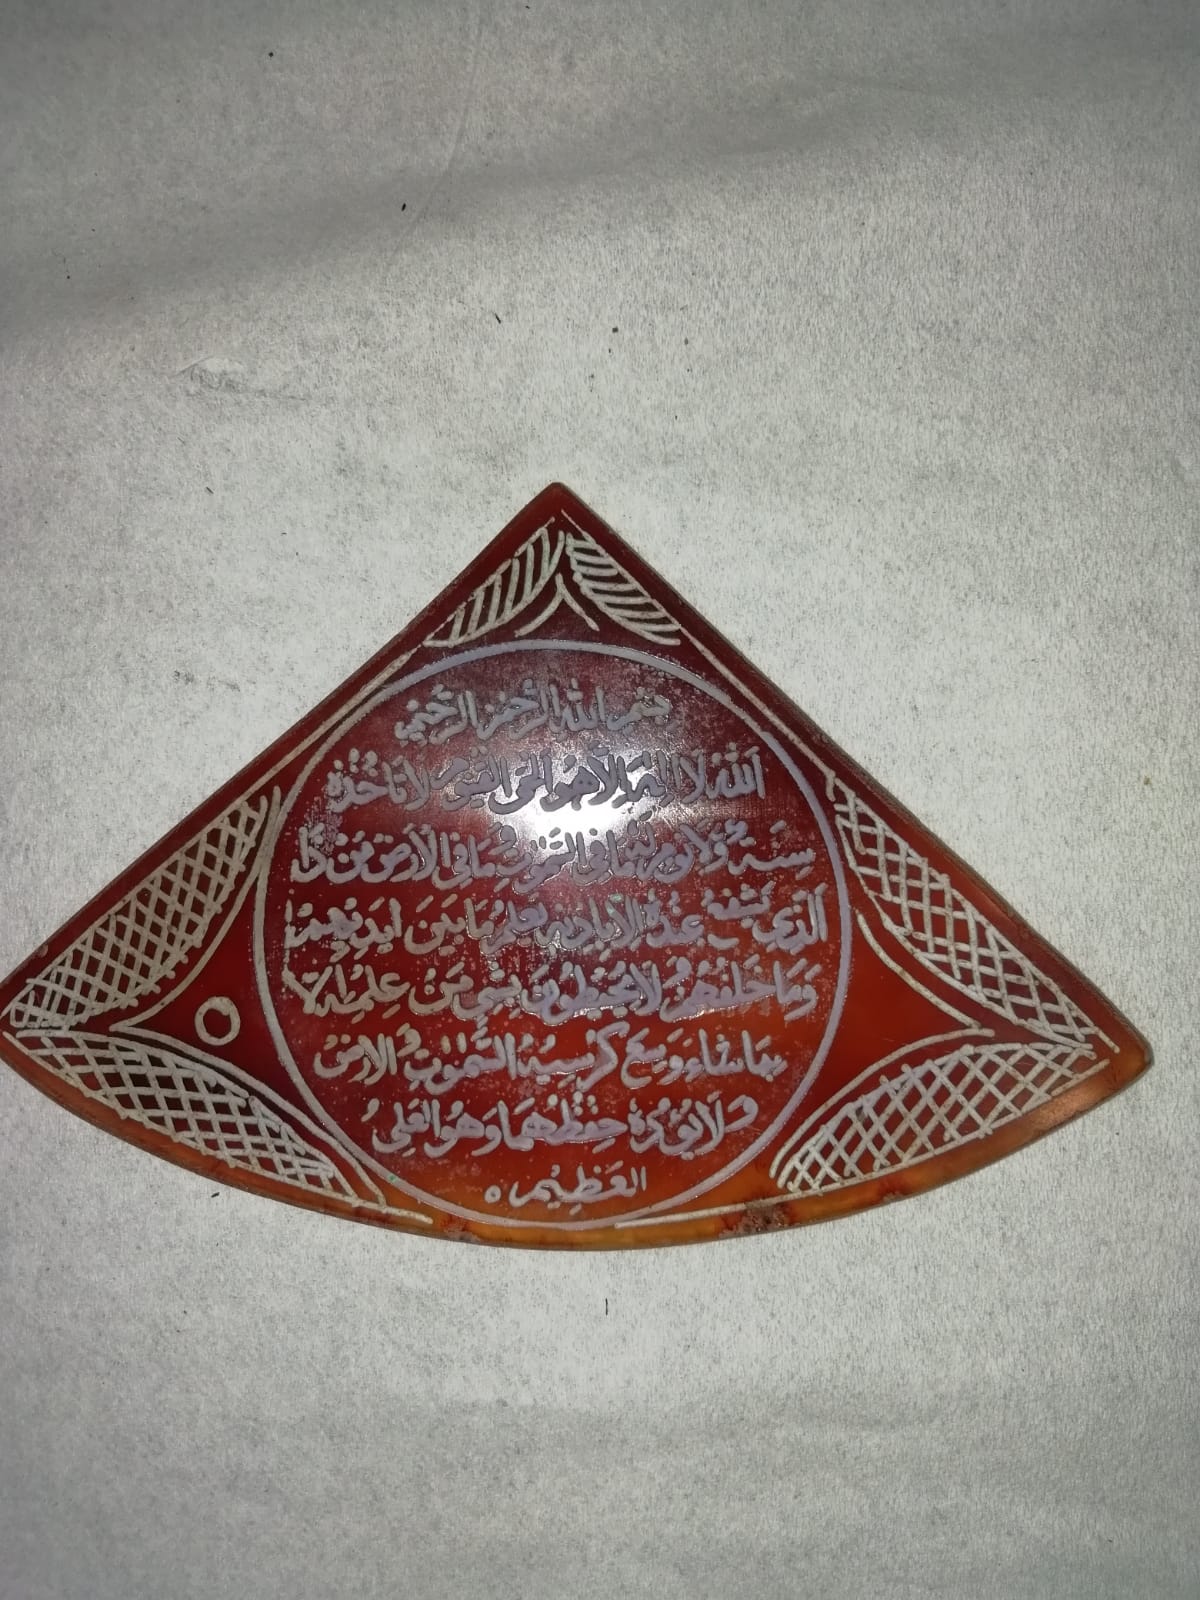 بسم الله الرحمن الرحيم
الله لا اله الا هو الحي القيوم لا تاخذه
سنة ولا نوم له ما في السموت وما في الأرض من ذا
الذي يشفع عنده الا باذنه يعلم ما بين ايديهم
وما خلفهم ولا يحيطون بشي من علمه الا
بما شاء وسع كرسيه السموت والارض
ولا يؤده حفظهما وهو العلي
العظيم ه